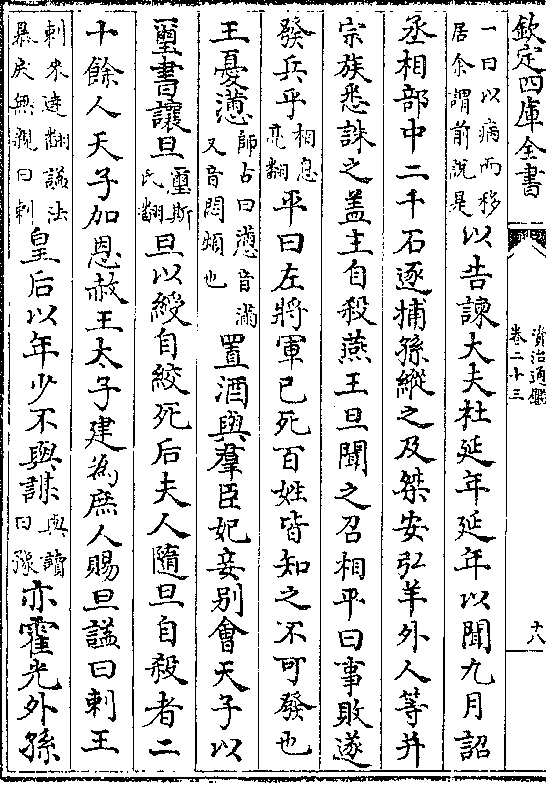 欽定四庫全書
資治通鑑
卷二十三
十八
一曰以病而移
居余謂前說是
以告諫大夫杜延年延年以聞九月詔
丞相部中二千石逐捕孫縱之及桀安弘羊外人等并
宗族悉誅之蓋主自殺燕王旦聞之召相平曰事敗遂
發兵乎相息亮翻平曰左將軍已死百姓皆知之不可發也
王憂懣師古曰懣音滿又音悶煩也置酒與羣臣妃妾别會天子以
璽書讓旦璽斯氏翻旦以綬自絞死后夫人隨旦自殺者二
十餘人天子加恩赦王太子建為庶人賜旦諡曰剌王
剌來達翻諡法
暴戾無親曰剌
皇后以年少不與謀與讀曰豫亦霍光外孫